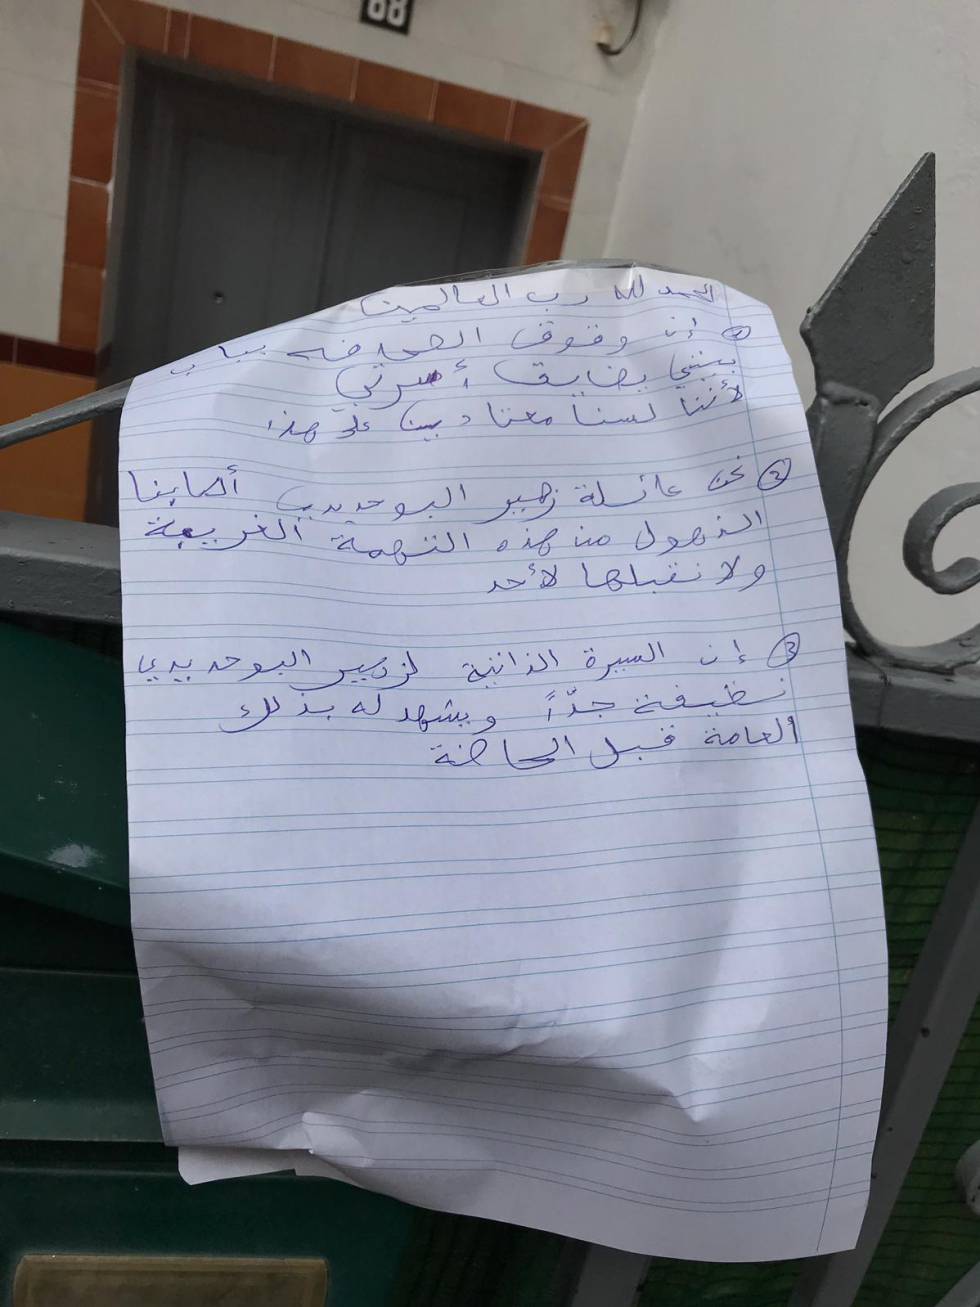 88
الحمد لله رب العالمين
① إن وقوف الصحافة بباب
بيتي يضايق أسرتي
لأننا لسنا معتادين على هذا
② نحن عائلة زهير البوحديدي أصابنا
الذهول من هذه التهمة الغريبة
ولا نقبلها لأحد
③ إن السيرة الذاتية لزهير البوحديدي
نظيفة جدّاً ويشهد له بذلك
العامة قبل الخاصة